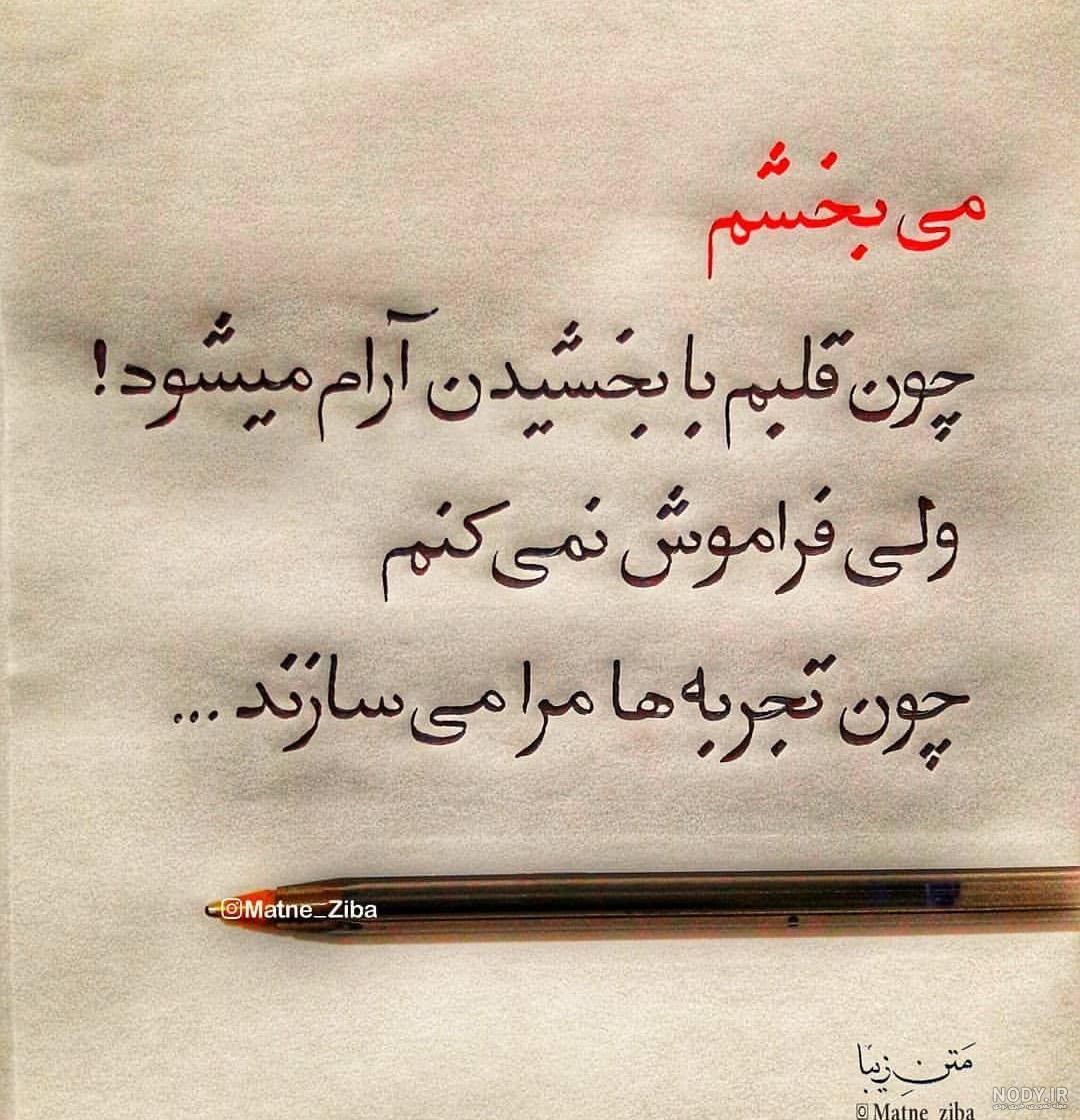 می بخشم
چون قلبم با بخشیدن آرام میشود!
ولی فراموش نمی کنم
چون تجربه ها مرا می سازند ...
Matne_Ziba
متن زیبا
NODY.IR
Matne_ziba